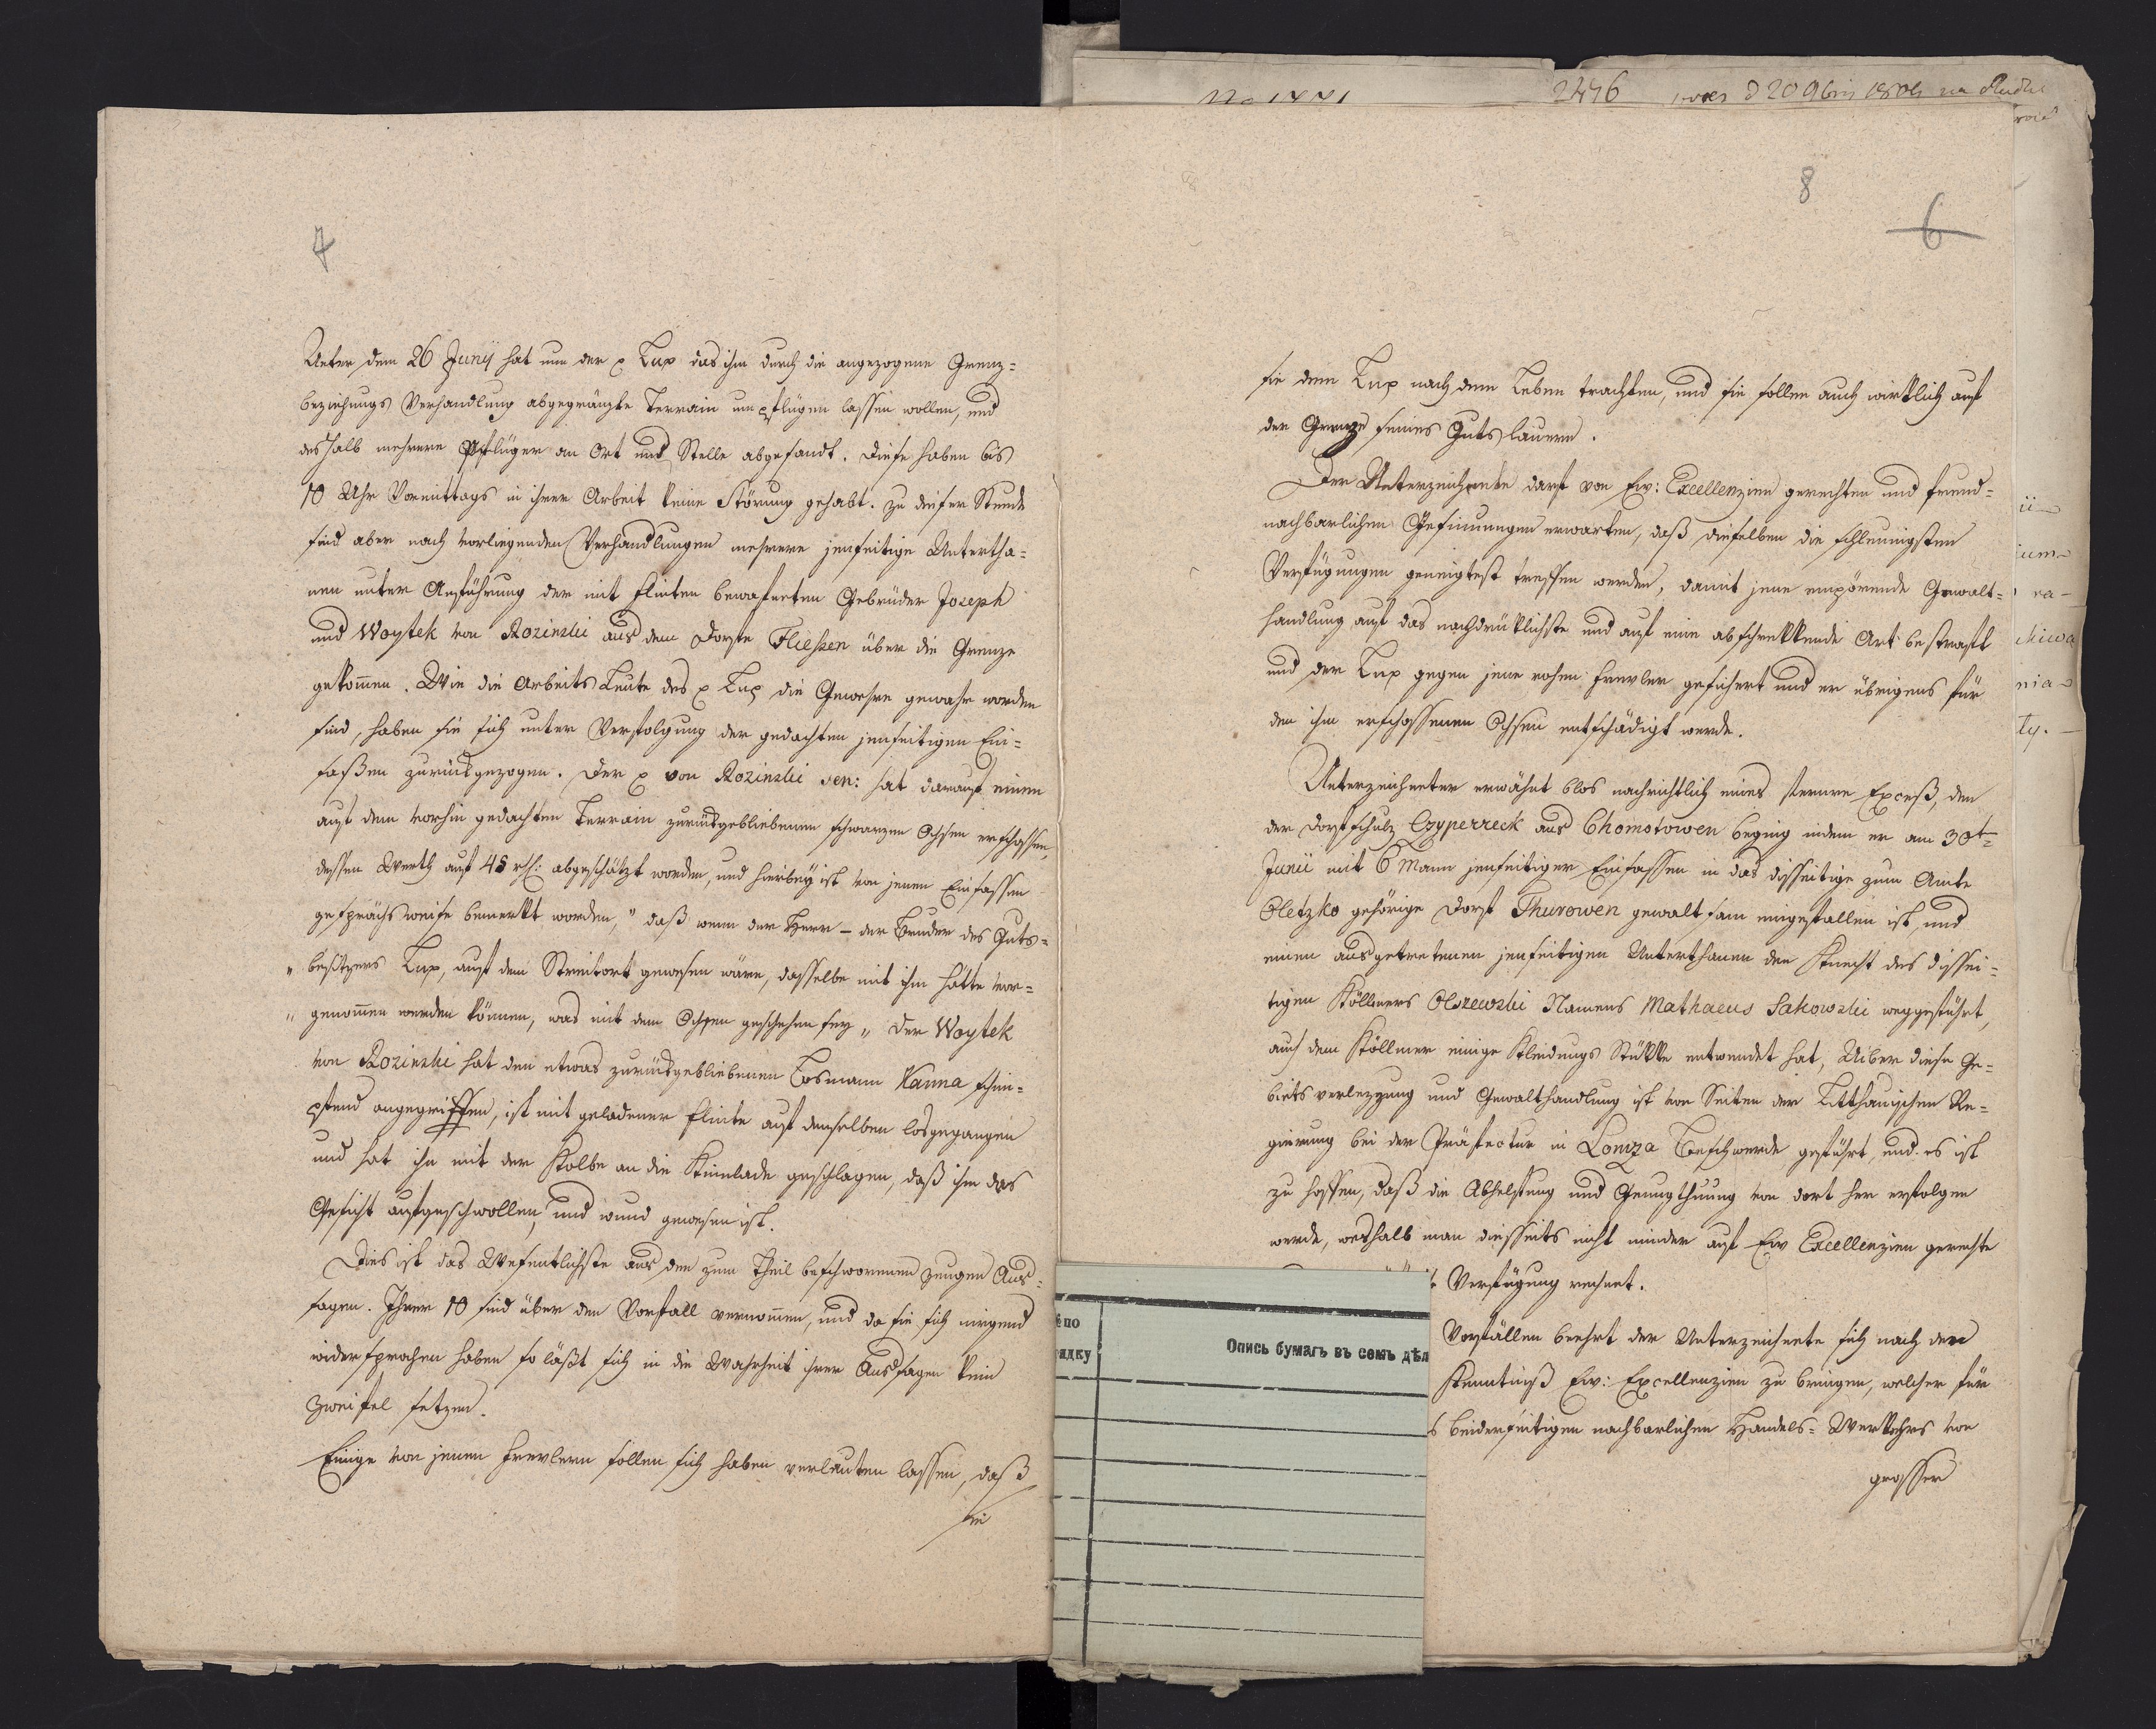 4
Unter dem 26 Junÿ hat nun der p Lux das ihm durch die angezogene Grenz=
beziehungs Verhandlung abgegränzte Terrain umpflügen lassen wollen, und
deshalb mehrere Pflüger an Ort und Stelle abgesandt. Diese haben bis
10 Uhr Vormittags in ihrer Arbeit keine Störung gehabt. Zu dieser Stunde
sind aber nach vorliegenden Verhandlungen mehrere jenseitige Untertha=
nen unter Anführung der mit Flinten bewafneten Gebrüder Joseph
und Woytek von Rozinski aus dem Dorfe Fliessen über die Grenze
gekommen. Wie die Arbeits Leute des p Lux die Gewehre gewahr worden
sind, haben sie sich unter Verfolgung der gedachten jenseitigen Ein=
saßen zurückgezogen. Der p von Rozinski sen: hat darauf einen
auf dem vorhin gedachten Terrain zurückgebliebenen schwarzen Ochsen erschossen,
dessen Werth auf 45 rth: abgeschätzt worden, und hierbey ist von jenen Einsassen
gesprächsweise bemerkt worden, "daß wenn der Herr – der Bruder des Guts=
" besitzers Lux, auf dem Streitort gewesen wäre, dasselbe mit ihm hätte vor=
" genommen werden können, was mit dem Ochsen geschehen sey" Der Woytek
von Rozinski hat den etwas zurückgebliebenen Losmann Kanna schim=
pfend angegriffen, ist mit geladener Flinte auf denselben losgegangen
und hat ihn mit der Kolbe an die Kinnlade geschlagen, daß ihm das
Gesicht aufgeschwollen, und wund gewesen ist.
Dies ist das Wesentlichste aus den zum Theil beschworenen Zeugen Aus=
sagen. Ihrer 10 sind über den Vorfall vernommen, und da sie sich nirgend
widersprochen haben so läßt sich in die Wahrheit ihrer Aussagen kein
Zweifel setzen.
Einige von jenen Frevlern sollen sich haben verlauten lassen, daß
sie
2476
8
6
sie dem Lux nach dem Leben trachten, und sie sollen auch wirklich auf
der Grenze seines Guts lauern.
Der Unterzeichnete darf von Ew: Excellenzien gerechten und freund=
nachbarlichen Gesinnungen erwarten, daß dieselben die schleunigsten
Verfügungen geneigtest treffen werden, damit jene empörende Gewalt=
handlung auf das nachdrüklichste und auf eine abschrekkende Art bestraft
und der Lux gegen jene rohen Frevler gesichert und er übrigens für
den ihm erschossenen Ochsen entschädigt werde.
Unterzeichneter erwähnt blos nachrichtlich eines Exceß, den
der Dorfschulz Czyperreck aus Chomotowen beging indem er am 30t
Junii mit 6 Mann jenseitiger Einsassen in das disseitige zum Amte
Oletzko gehörige Dorf Thurowen gewaltsam eingefallen ist, und
einen ausgetretenen jenseitigen Unterthanen den Knecht des dissei=
tigen Köllmers Olszewski Namens Mathaeus Sakowski weggeführt,
auch dem Köllmer einige Kleidungs Stükke entwendet hat, Ueber diese Ge=
bietsverlezzung und Gewalthandlung ist von Seiten der Litthauischen Re=
gierung bei der Präfectur in Lomza Beschwerde geführt, und es ist
zu hoffen, daß die Abhelfung und Genugthuung von dort her erfolgen
werde, weshalb man diesseits nicht minder auf Ew Excellenzien gerechte
Verfügung rechnet.
Vorfällen beehrt der Unterzeichnete sich noch den
Kenntniß Ew: Excellenzien zu bringen, welcher für
s beiderseitigen nachbarlichen Handels= Verkehrs von
grosser
ѣ по
ядку
Опись бумагъ въ семъ дѣл
ii
ium
ra
chiwa
nia
ty.